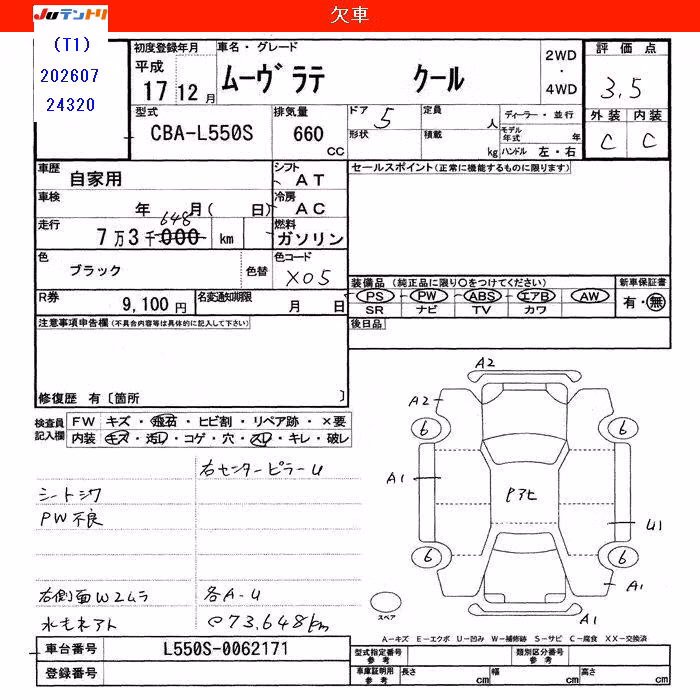 欠車
JUテントリ
(T1)
202607
24320
初度登録年月
平成
17 12月
車名・グレード
ムーヴ ラテ クール
2WD
・
4WD
評価点
3.5
型式
CBA-L550S
排気量
660 CC
ドア 5
形状
定員 人
積載 kg
ディーラー・並行
モデル年式 年
ハンドル 左・右
外装 内装
C C
車歴
自家用
シフト
AT
セールスポイント(正常に機能するものに限ります)
車検
年 月( 日)
冷房
AC
走行
648
7万3千000 km
燃料
ガソリン
色
ブラック
色替
色コード
X05
装備品(純正品に限り○をつけてください)
新車保証書
PS PW ABS エアB AW
有・無
SR ナビ TV カワ
R券
9,100円
名変通知期限
月 日
注意事項申告欄(不具合内容等は具体的に記入して下さい)
後日品
修復歴 有〔箇所 〕
検査員記入欄
FW キズ・飛石・ヒビ割・リペア跡・×要
内装 キズ・汚レ・コゲ・穴・スレ・キレ・破レ
右センターピラーU
シートシワ
PW不良
右側面W2ムラ
各A-U
水モネアト
73,648km
A2
A2
6
6
A1
U1
6
6
A1
A1
スペア
A-キズ E-エクボ U-凹み W-補修跡 S-サビ C-腐食 XX-交換済
車台番号
L550S-0062171
登録番号
型式指定番号 参考
類別区分番号 参考
車庫証明用 参考
長さ cm
幅 cm
高さ cm